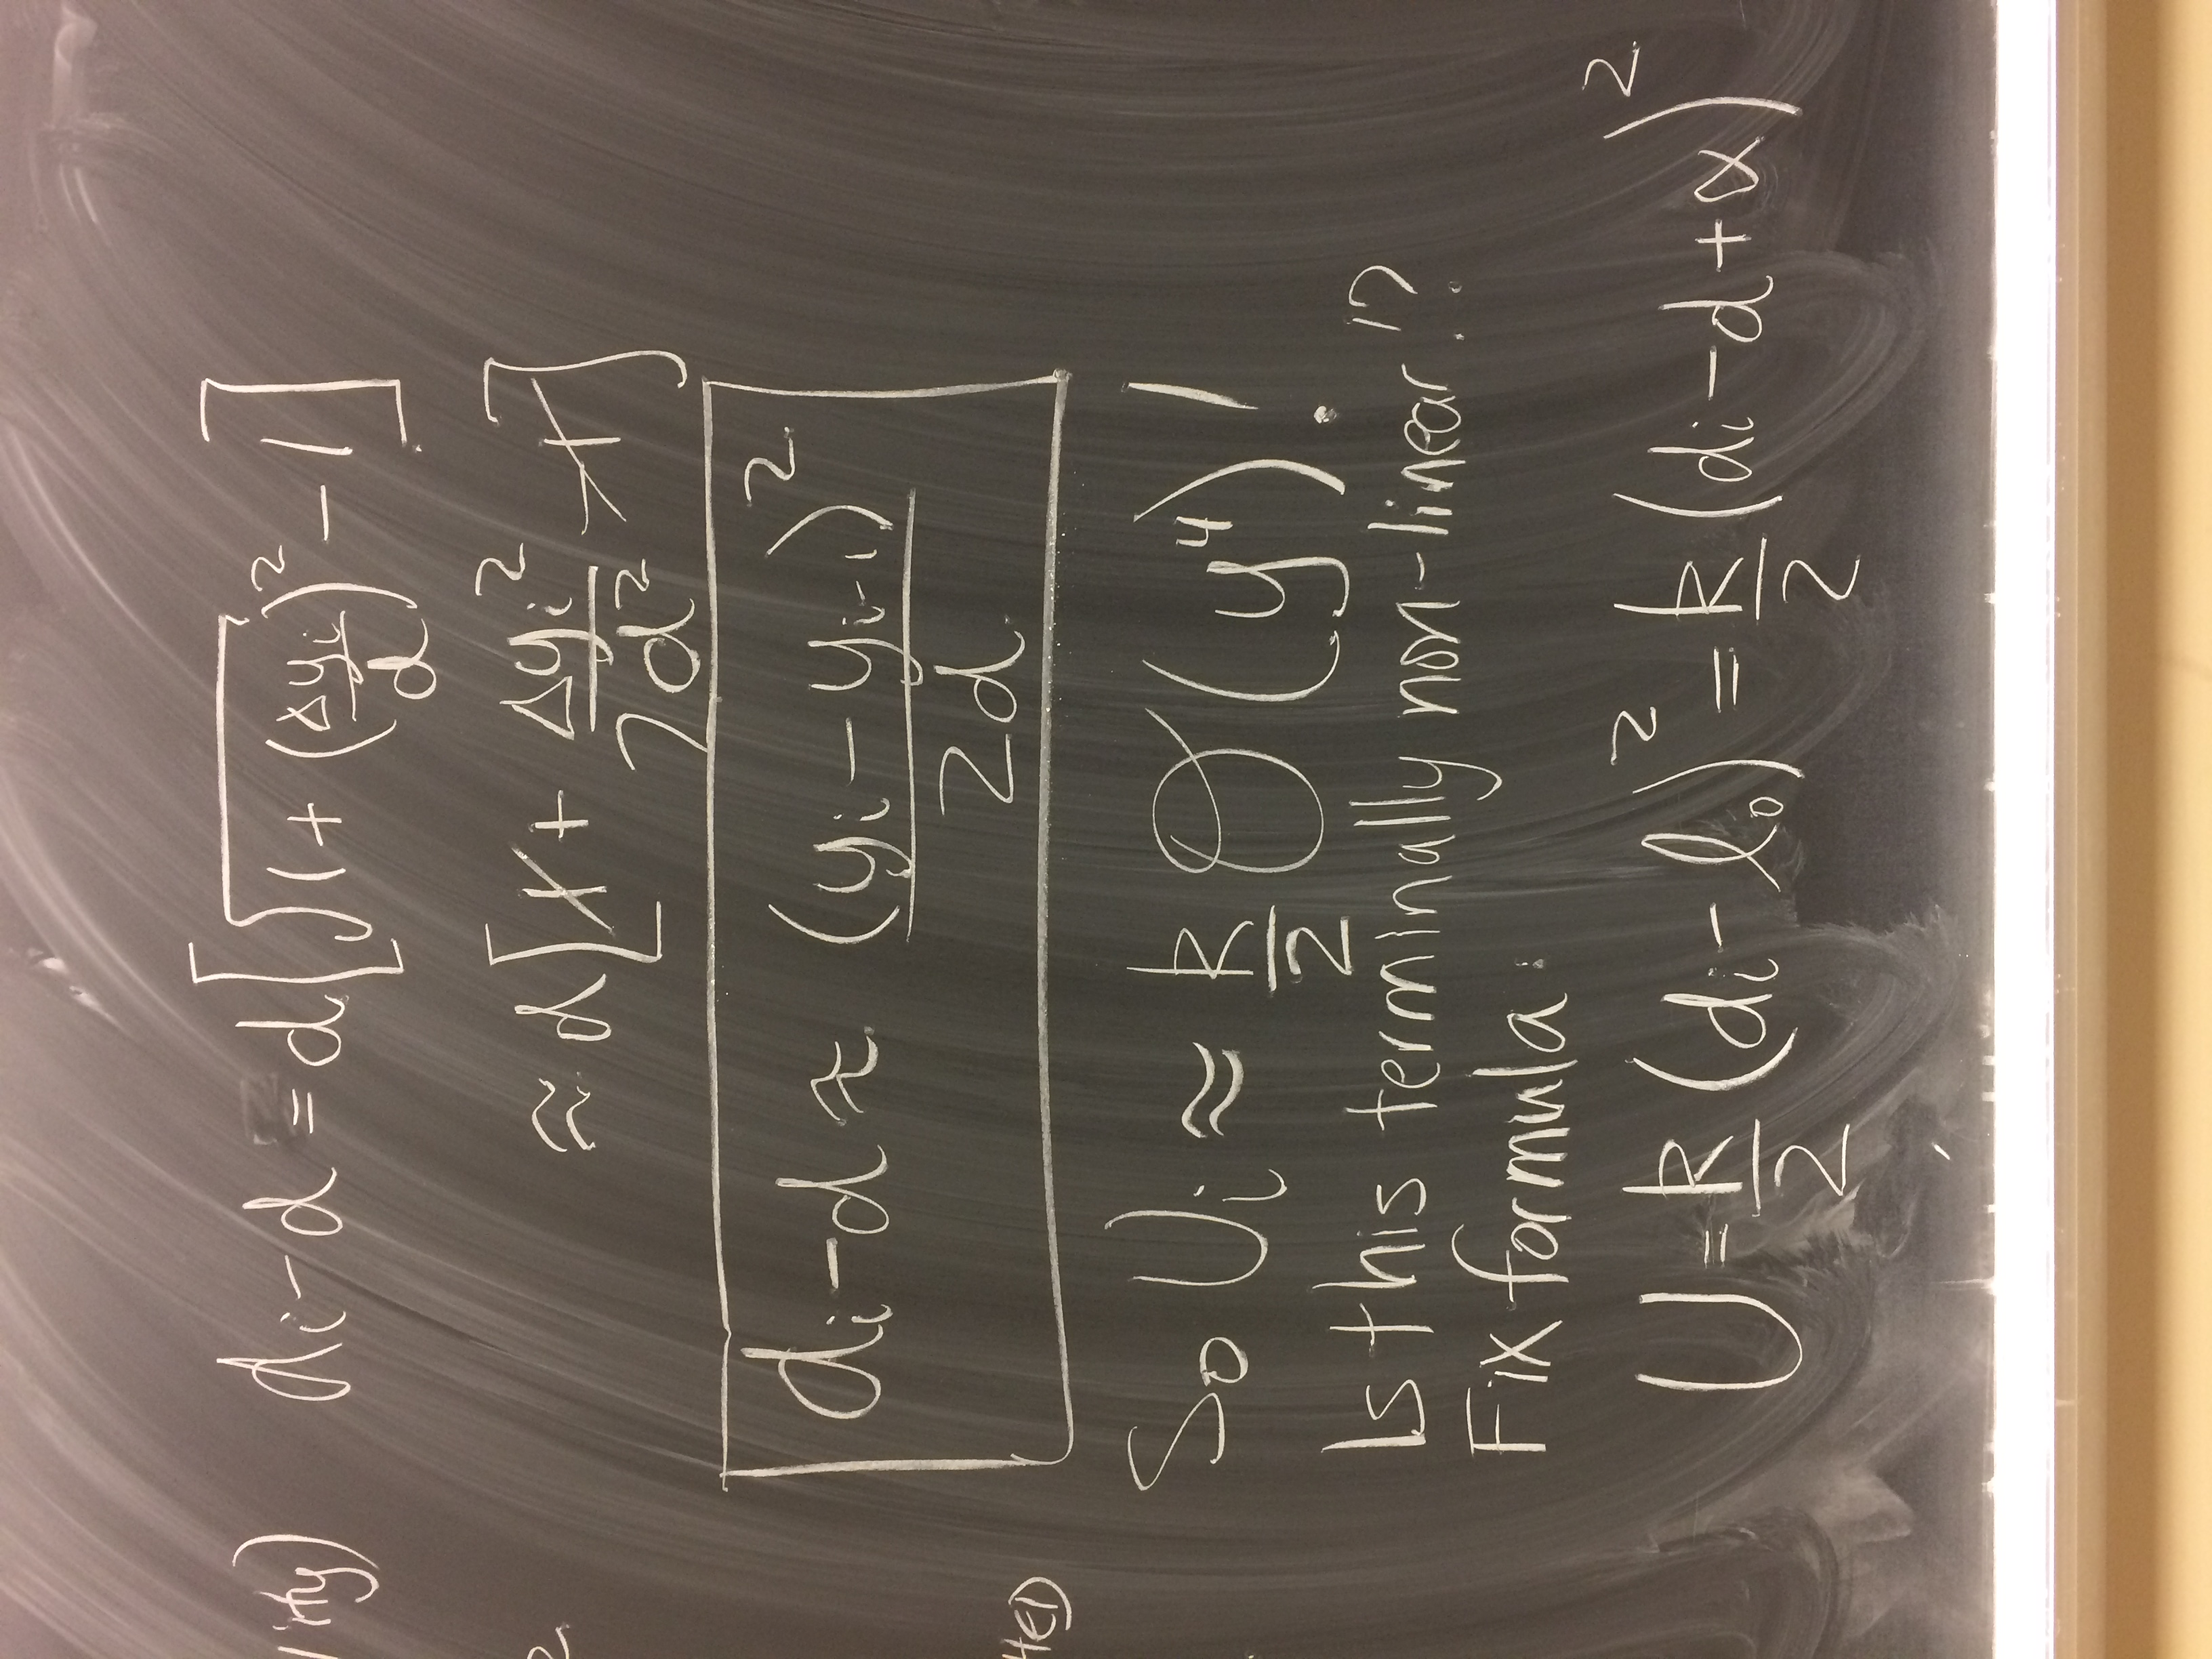 di - d = d[√(1 + (Δyi/d)²) - 1]
≈ d[1 + Δyi²/2d² - 1]
di - d ≈ (yi - yi-1)²/2d
So Ui ≈ k/2 O(y⁴)!
Is this terminally non-linear!?
Fix formula:
U = k/2 (di - l₀)² = k/2 (di - d + α)²